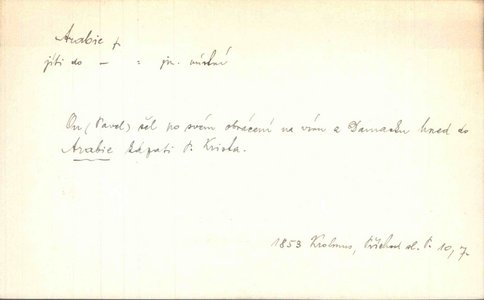 Arabie f
jíti do – : jm. místní
On (Pavel) šel po svém obrácení na víru z Damašku hned do
Arabie kázati P. Krista.
1853 Krolmus, Příchod sl. P. 10, 7.